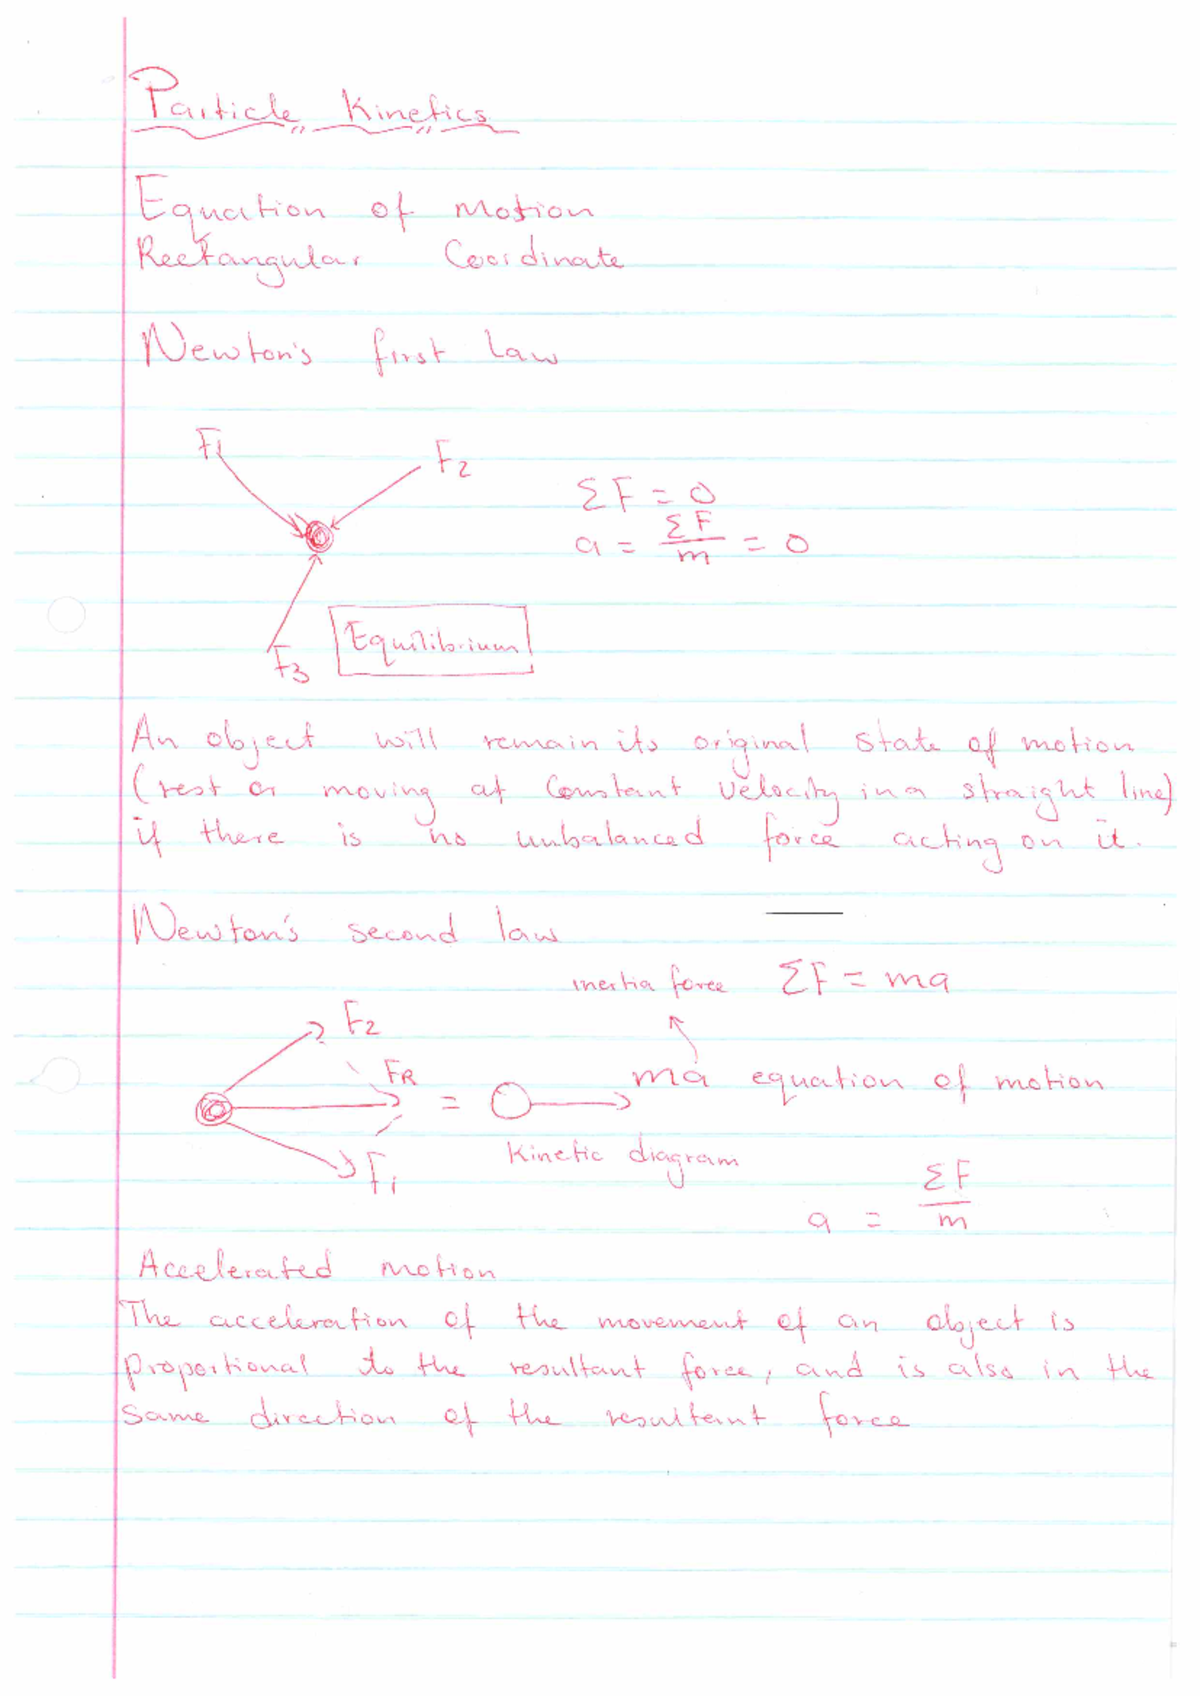 Particle Kinetics
Equation of motion
Rectangular Coordinate
Newton's first law
F1
F2
ΣF = 0
a = ΣF/m = 0
Equilibrium
F3
An object will remain its original state of motion
(rest or moving at constant velocity in a straight line)
if there is no unbalanced force acting on it.
Newton's second law
inertia force ΣF = ma
F2
FR = ma equation of motion
Kinetic diagram
F1
a = ΣF/m
Accelerated motion
The acceleration of the movement of an object is
proportional to the resultant force, and is also in the
same direction of the resultant force